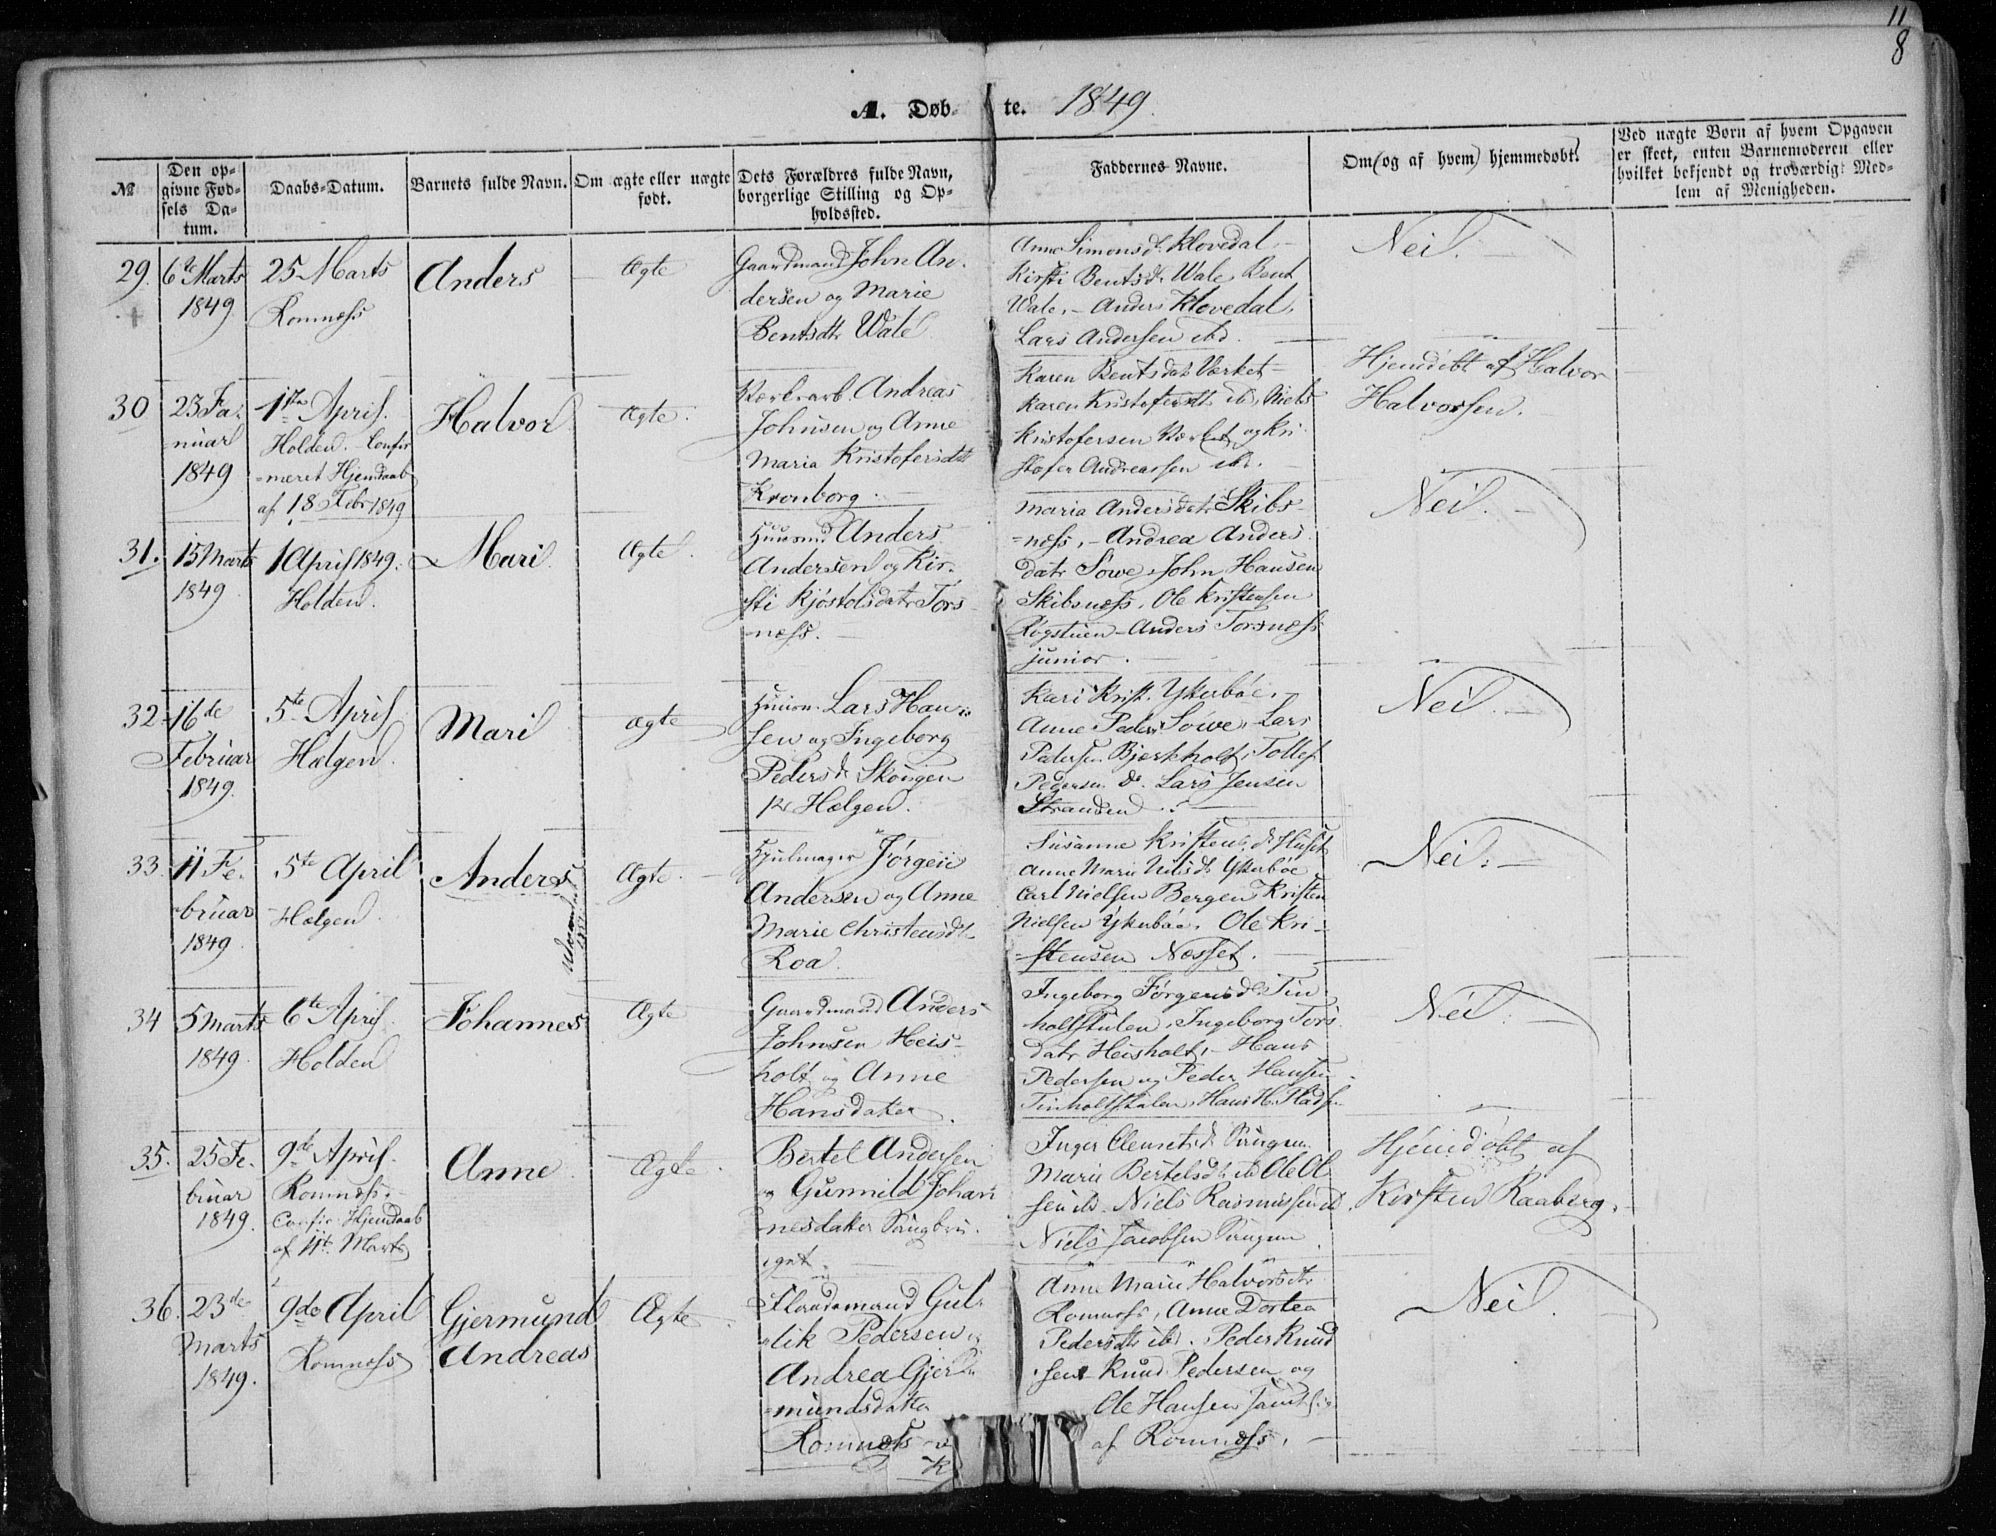 11
8
A. Døb- te. 1849.
№
Den op-
givne Fød-
sels Da-
tum.
Daabs-Datum.
Barnets fulde Navn.
Om ægte eller uægte
født.
Dets Forældres fulde Navn,
borgerlige Stilling og Op-
holdssted.
Faddernes Navne.
Om (og af hvem) hjemmedøbt?
Ved uægte Børn af hvem Opgaven
er skeet, enten Barnemoderen eller
hvilket bekjendt og troværdigt Med-
lem af Menigheden.
29.
6te Marts
1849
25 Marts
Romnæss
Anders
Ægte
Gaardmand John An-
dersen og Marie
Bentsdtr Wale
Anne Simonsd. Klovedal
Kirsti Bentsdr Wale, Bent
Wale, - Anders Klovedal,
Lars Andersen ibd.
Nei.
30
23 Ja-
nuar
1849
1ste April.
Holden. Confir
=meret Hjemdaab
af 18 Febr 1849
Halvor
Ægte.
Værkarb. Andreas
Johnsen og Anne
Maria Kristofersdtr
Kronborg.
Karen Bentsdatr Værket
Karen Kristofersdtr ibd, Niels
Kristofersen Værket og Kri-
stofer Andreassen ibd.
Hjemdøbt af Halvor
Halvorsen.
31.
15 Marts
1849
1 April 1849.
Holden.
Mari
Ægte.
Huusmd Anders
Andersen og Kir-
sti Kjøstolsdatr Tors
næss.
Maria Andersdatr Skibs-
=næss, - Andrea Anders-
datr Sowe, John Hansen
Skibsnæss, Ole Kristensen
Røgstuen - Anders Torsnæss
junior.
Nei.
32
16de
Februar
1849.
5te April.
Hælgen.
Mari
Ægte
Lars Han-
sen og Ingeborg
Pedersdr Skougen
Hælgen.
Kari Krist. Ykerbøe,
Anne Peders Sowe, Lars
Pedersen Bjerkholt, Tollef
Pedersen do. Lars Jensen
Stranden.
Nei.
33.
11 Fe-
bruar
1849.
5te April
Hælgen
Anders
Ægte.
Hjulmager Jørgen
Andersen og Anne
Marie Christensdtr
Roa.
Susanne Kristensd.
Anne Marie Nilsdr Ykerbøe
Carl Nielsen Bergen, Kristen
Nielsen Ykerbøe, Ole Kri-
stensen Næsset.
Nei.
34
5 Marts
1849
6te April.
Holden
Johannes
Ægte
Gaardmand Anders
Johnsen Heis-
holt og Anne
Hansdater
Ingeborg Jørgensdr Tin-
holtstulen, Ingeborg Tors-
datr Heisholt, - Hans
Pedersen og Peder Hansen
Tinholtstulen, Hans H.
Nei.
35.
25 Fe-
bruar
1849.
9de April.
Romnæss.
Confir. Hjemdaab
af 11te Marts
Anne
Ægte.
Bertel Andersen
og Gunnild Johan
nesdater
Inger Clemetsdr
Marie Bertelsdtr ibd Ole Ol-
sen ibd. Niels Rasmussen ibd.
Niels Jacobsen
Hjemdøbt af
Kirsten Raaberg.
36.
23de
Marts
1849.
9de April
Romnæss
Gjermund
Andreas
Ægte
Gul-
lik Pedersen og
Andrea Gjer-
=mundsdatter
Romnæss
Anne Marie Halvorsdtr
Romnæss, Anne Dortea
Pedersdtr ibd. Peder Knud
sen Knud Pedersen og
Ole Hansen
af Romnæss.
Nei.